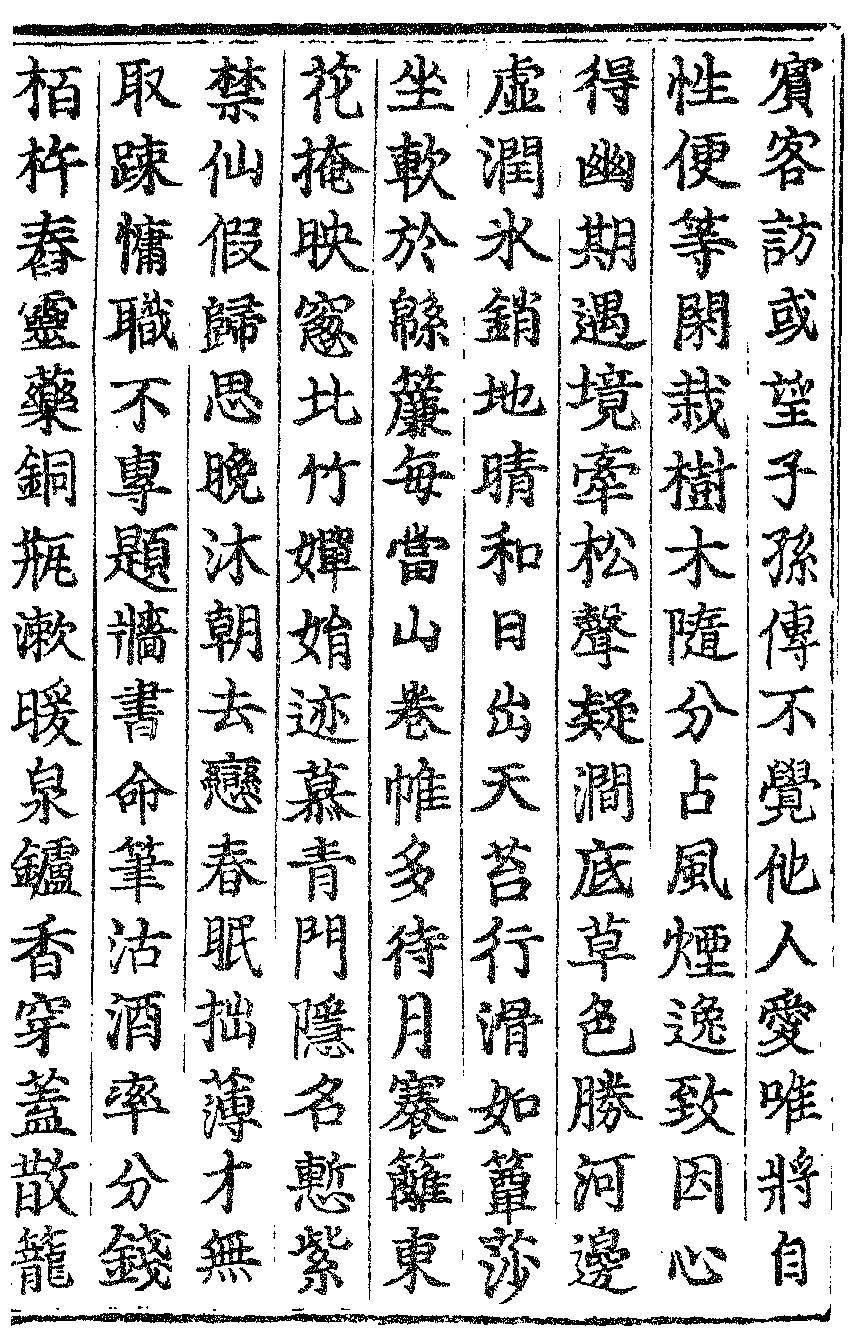 賓客訪或望子孫傳不覺他人愛唯將自
性便等閑栽樹木隨分占風煙逸致因心
得幽期遇境牽松聲疑澗底草色勝河邊
虛潤氷銷地晴和日出天苔行滑如簟莎
坐軟於緜簾每當山卷帷多待月褰籬東
花掩映窻北竹嬋娟迹慕青門隱名慙紫
禁仙假歸思晚沐朝去戀春眠拙薄才無
取踈慵職不專題牆書命筆沽酒率分錢
栢杵舂靈藥銅瓶漱暖泉鑪香穿蓋散籠